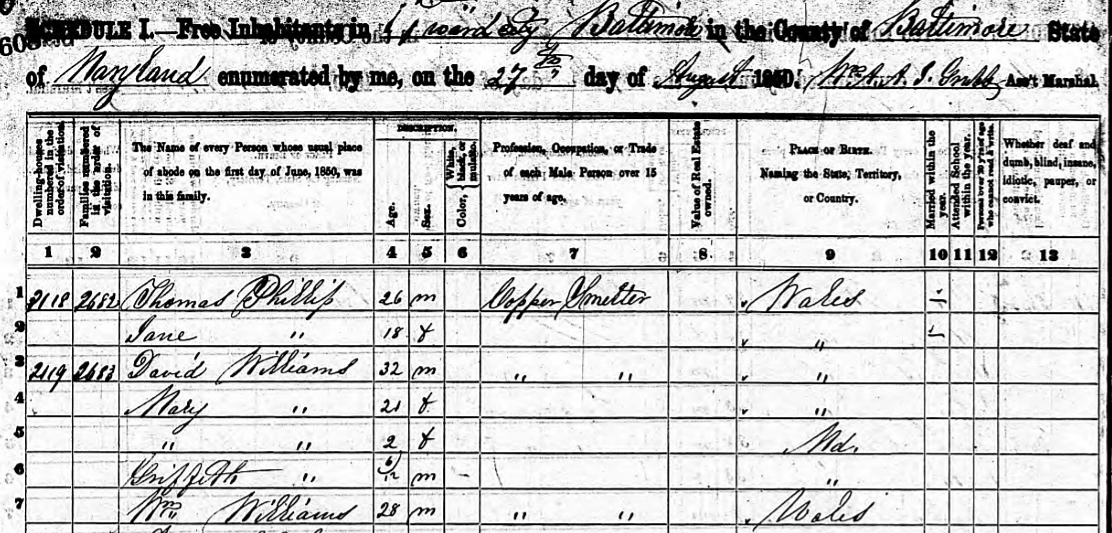 SCHEDULE I.—Free Inhabitants in ward city Baltimore in the County of Baltimore State
of Maryland enumerated by me, on the 27th day of August 1850. Wm. A. A. J. Grubb Ass't Marshal.
Dwelling-houses numbered in the order of visitation.
Families numbered in the order of visitation.
The Name of every Person whose usual place
of abode on the first day of June, 1850, was
in this family.
DESCRIPTION.
Age.
Sex.
White, black, or mulatto.
Color,
Profession, Occupation, or Trade
of each Male Person over 15
years of age.
Value of Real Estate owned.
PLACE OF BIRTH.
Naming the State, Territory,
or Country.
Married within the year.
Attended School within the year.
Persons over 20 y'rs of age who cannot read & write.
Whether deaf and
dumb, blind, insane,
idiotic, pauper, or
convict.
1 2 3 4 5 6 7 8 9 10 11 12 13
1 2118 2682 Thomas Phillip 26 m Copper Smelter Wales
2 Jane " 18 f "
3 2119 2683 David Williams 32 m " " "
4 Mary " 21 f "
5 " " 2 f Md.
6 Griffith " 6/12 m "
7 Wm Williams 28 m " " Wales